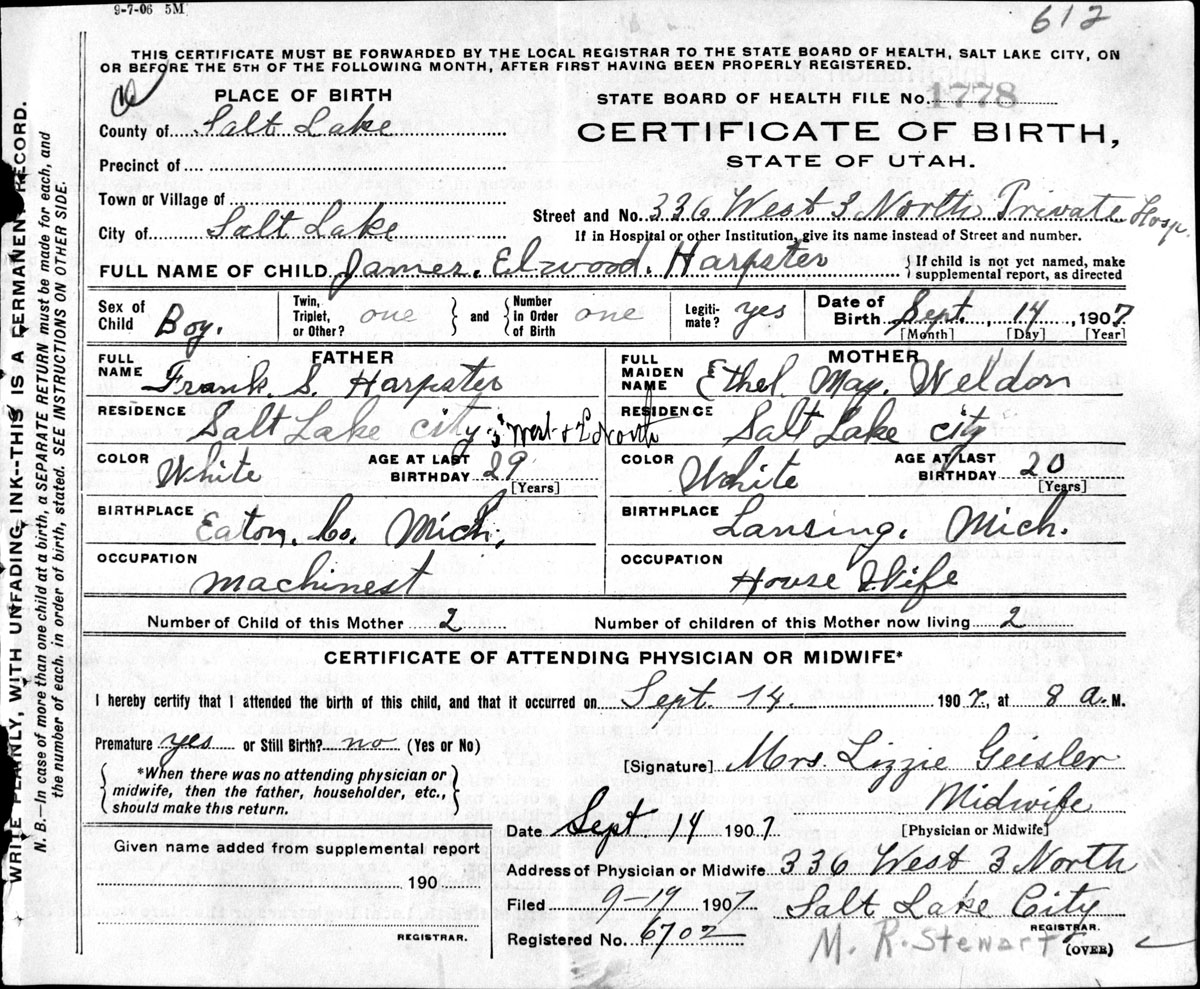 9-7-06 5M
612
THIS CERTIFICATE MUST BE FORWARDED BY THE LOCAL REGISTRAR TO THE STATE BOARD OF HEALTH, SALT LAKE CITY, ON
OR BEFORE THE 5TH OF THE FOLLOWING MONTH, AFTER FIRST HAVING BEEN PROPERLY REGISTERED.
PLACE OF BIRTH
STATE BOARD OF HEALTH FILE No. 1778
County of Salt Lake
CERTIFICATE OF BIRTH,
STATE OF UTAH.
Precinct of
Town or Village of
Street and No. 336 West 3 North Private Hosp.
City of Salt Lake
If in Hospital or other Institution, give its name instead of Street and number.
FULL NAME OF CHILD James. Elwood. Harpster
{If child is not yet named, make
supplemental report, as directed
Sex of Child Boy.
Twin, Triplet, or Other? one
and
Number in Order of Birth one
Legiti-mate? yes
Date of Birth Sept. 14, 1907
[Month] [Day] [Year]
FATHER
FULL NAME Frank. S. Harpster
MOTHER
FULL MAIDEN NAME Ethel. May. Weldon
RESIDENCE Salt Lake city. West & North
RESIDENCE Salt Lake city
COLOR White AGE AT LAST BIRTHDAY 29 [Years]
COLOR White AGE AT LAST BIRTHDAY 20 [Years]
BIRTHPLACE Eaton. Co. Mich.
BIRTHPLACE Lansing. Mich.
OCCUPATION Machinest
OCCUPATION House Wife
Number of Child of this Mother 2
Number of children of this Mother now living 2
CERTIFICATE OF ATTENDING PHYSICIAN OR MIDWIFE*
I hereby certify that I attended the birth of this child, and that it occurred on Sept. 14. 1907, at 8 a. M.
Premature yes or Still Birth? no (Yes or No)
[Signature] Mrs. Lizzie Geisler
Midwife
[Physician or Midwife]
*When there was no attending physician or
midwife, then the father, householder, etc.,
should make this return.
Date Sept 14 1907
Given name added from supplemental report
190
REGISTRAR.
Address of Physician or Midwife 336 West 3 North
Salt Lake City
Filed 9-19 1907
Registered No. 6702
M. R. Stewart
REGISTRAR.
(OVER)
WRITE PLAINLY, WITH UNFADING INK--THIS IS A PERMANENT RECORD.
N. B.—In case of more than one child at a birth, a SEPARATE RETURN must be made for each, and
the number of each, in order of birth, stated. SEE INSTRUCTIONS ON OTHER SIDE.